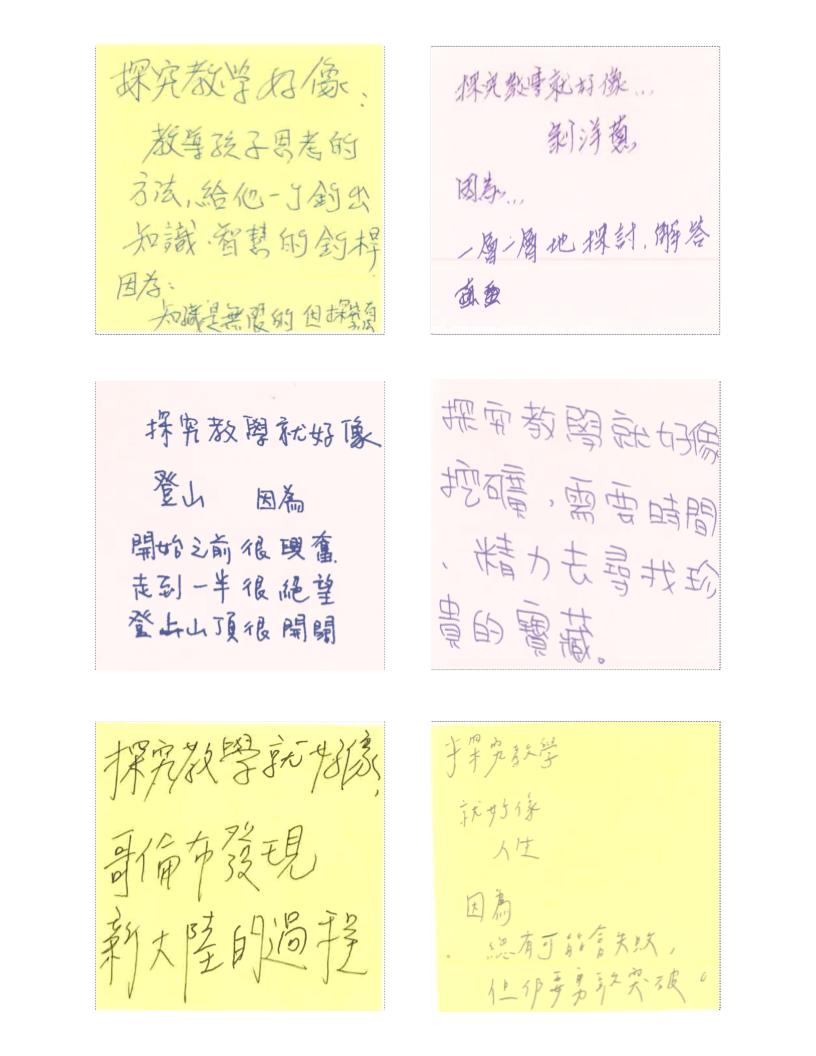 探究教学好像:
教導孩子思考的
方法,給他一个釣出
知識、智慧的釣桿
因為:
知識是無限的 但探
探究教學就好像...
剝洋蔥
因為...
一層一層地探討,解答
探究教學就好像
登山 因為
開始之前很興奮
走到一半很絕望
登上山頂很開闊
探究教學就好像
挖礦,需要時間
、精力去尋找珍
貴的寶藏。
探究教學就好像,
哥倫布發現
新大陸的過程
探究教學
就好像
人生
因為
總有可能會失敗,
但仍要勇敢突破。